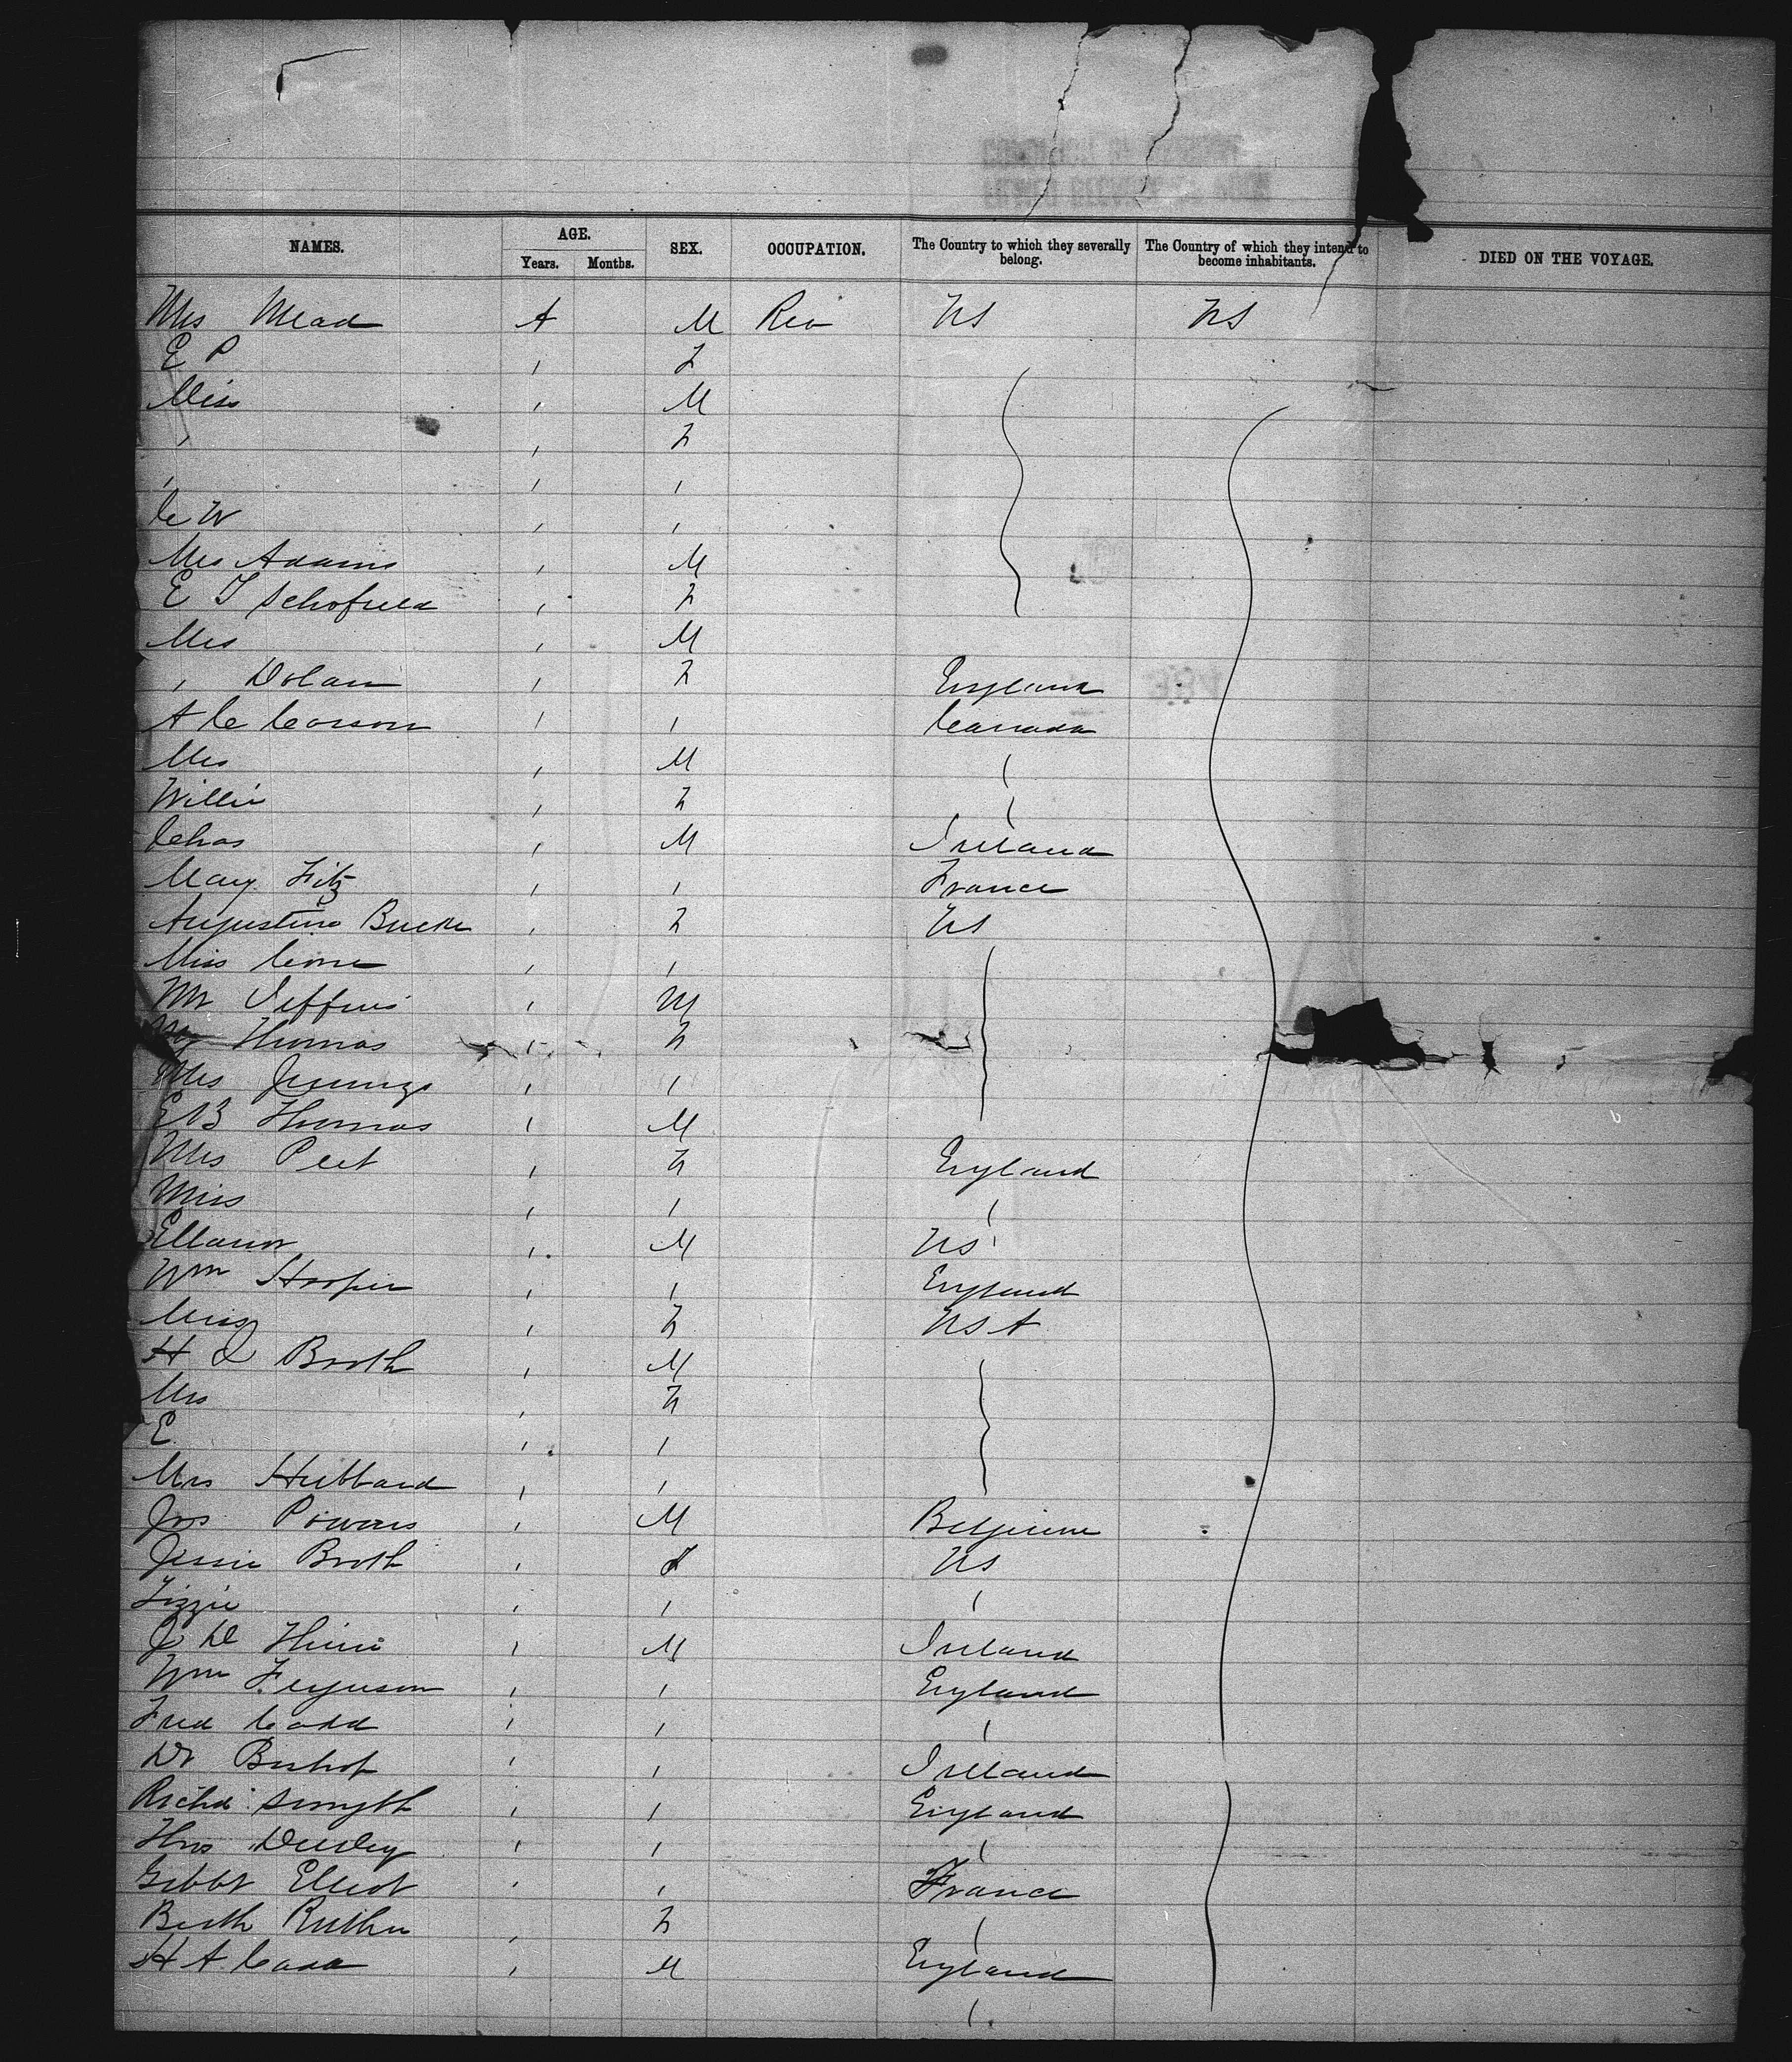 NAMES. AGE. SEX. OCCUPATION. The Country to which they severally belong. The Country of which they intend to become inhabitants. DIED ON THE VOYAGE.
Years. Months.
Mrs Mead A M US US
E P , F
Miss , M
, , F
, , ,
C W , ,
Mrs Adams , M
E T Schofield , F
Mrs , M
, Dolan , F England
A C Corson , , Canada
Mrs , M (
Willie , F (
Chas , M Ireland
Mary Fitz , , France
Augustine , F US
Miss Cone , ,
Mr Jeffries , M
Thomas , F
Mrs Jennings , ,
E B Thomas , M
Mrs Peet , F England
Miss , , (
Ellanor , M US
Wm Hooper , , England
Miss , F USA
H Booth , M
Mrs , F
E , ,
Mrs Hubbard , ,
Jos Powers , M Belgium
Jessie Booth , F US
Lizzie , , (
J M Ireland
Wm Ferguson , , England
Fred Codd , , (
Dr Bishop , , Ireland
Richd Smyth , , England
Thos , , (
Gibbt Elliot , , France
F (
H A , M England
(